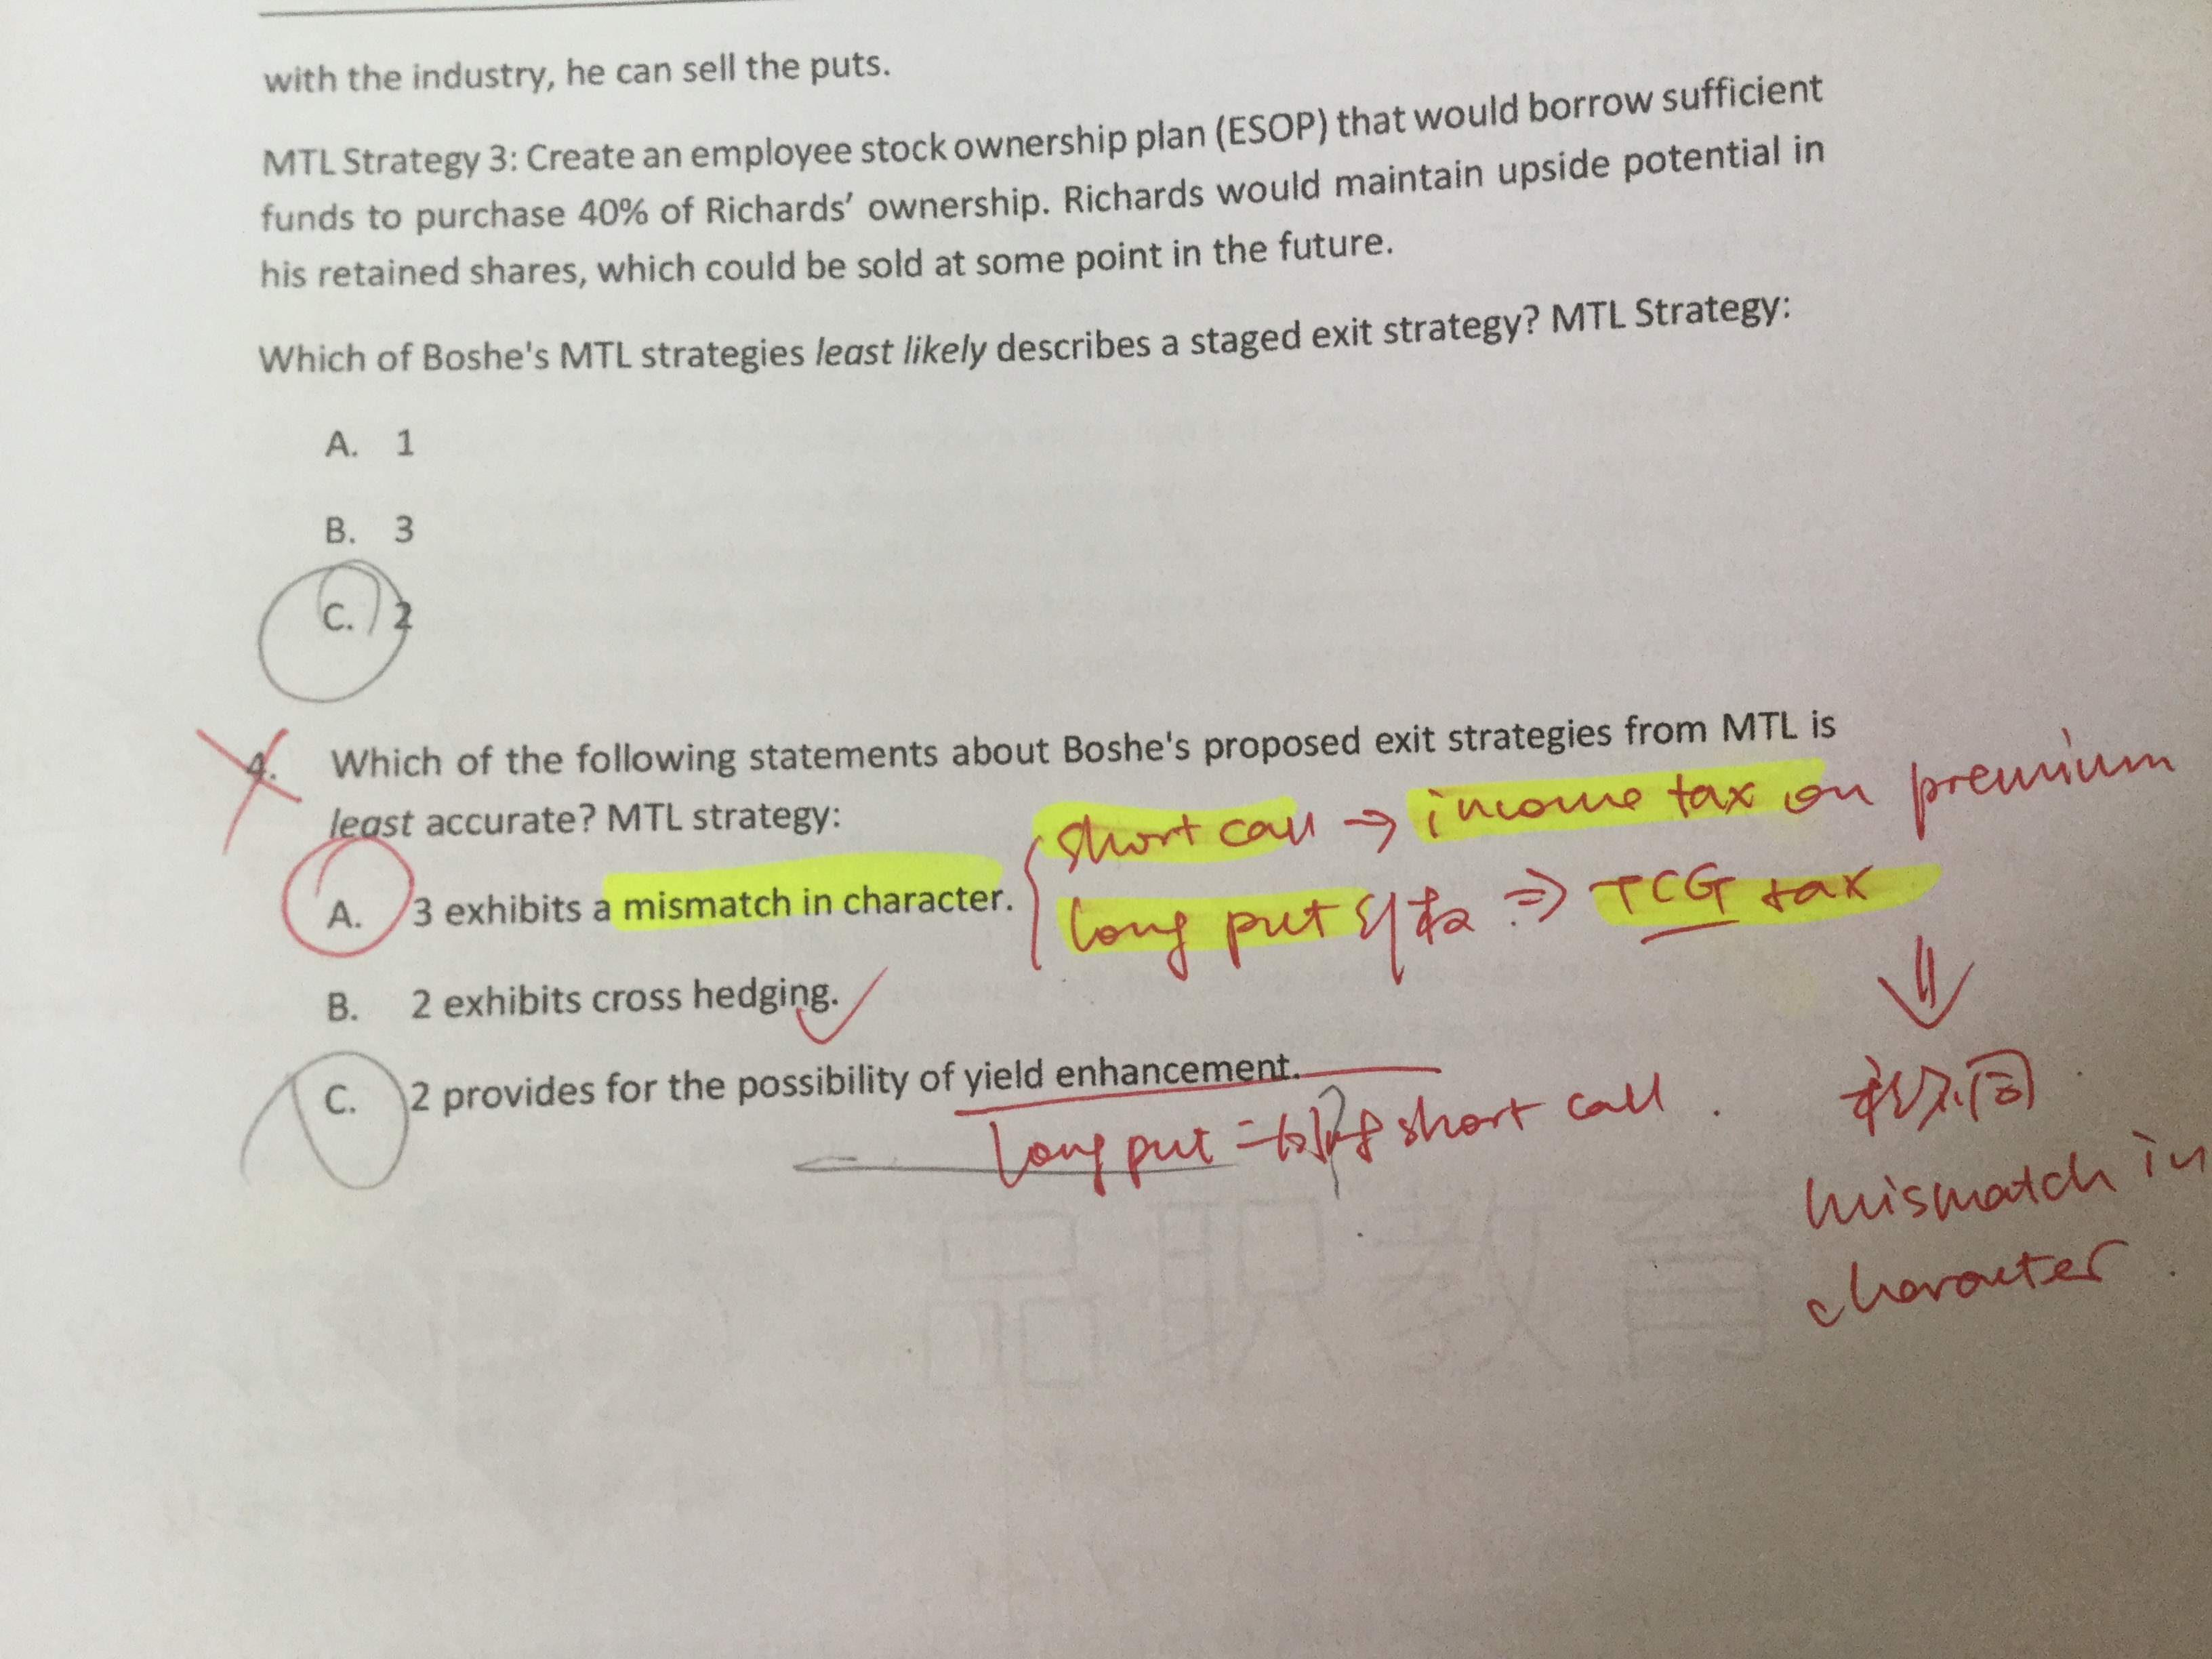 with the industry, he can sell the puts.
MTL Strategy 3: Create an employee stock ownership plan (ESOP) that would borrow sufficient
funds to purchase 40% of Richards' ownership. Richards would maintain upside potential in
his retained shares, which could be sold at some point in the future.
Which of Boshe's MTL strategies least likely describes a staged exit strategy? MTL Strategy:
A. 1
B. 3
C. 2
4. Which of the following statements about Boshe's proposed exit strategies from MTL is
least accurate? MTL strategy:
short call → income tax on premium
A. 3 exhibits a mismatch in character.
long put ⇒ TCG tax
B. 2 exhibits cross hedging.
C. 2 provides for the possibility of yield enhancement.
long put = short call.
不同
mismatch in
character.
品职教育